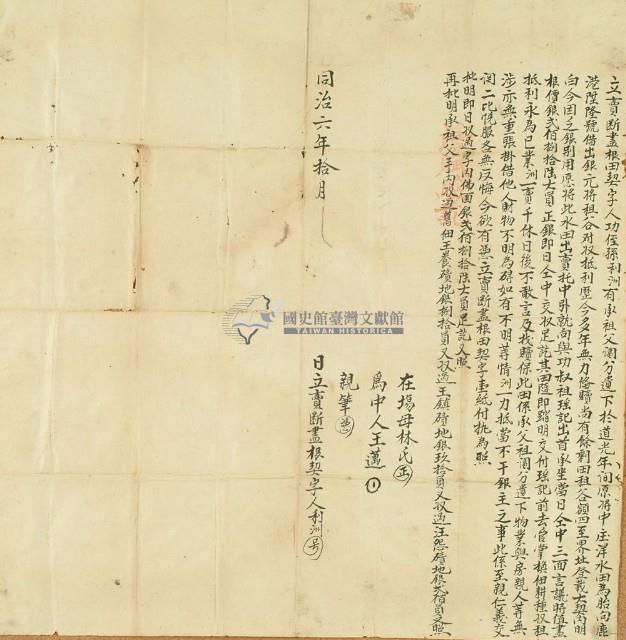 立賣斷盡根田契字人功侄孫利洲有承祖父鬮分遺下於道光年間原將中庄洋水田為胎向鹿
港陞隆號借出銀元將祖谷对收抵利歷今多年無力俻贖尚有餘剩田租谷額四至界址登載大契內明
白今因乏銀別用愿將此水田出賣托中引就向與功叔祖瑶記出首承坐當日仝中三面言議時值盡
根價銀弍佰捌拾陸大員正銀即日仝中交收足訖其田隨即踏明交付瑶記前去管掌換佃耕種收租
抵利永為己業洲一賣千休日後不敢言及找贖保此田係承父祖鬮分遺下物業與房親人等無
涉亦無重張掛借他人財物不明為碍如有不明等情洲一力抵當不干銀主之事此係至親仁義交
関二比悅服各無反悔今欲有憑立賣斷盡根田契字壹紙付执為照
批明即日收過字內佛面銀弍佰捌拾陸大員足訖又照
再批明承祖父手內收過舊佃王養磧地銀捌拾員又收過王鎮磧地銀玖拾員又收過汪怨磧地銀弍佰員又照
在塲母林氏
為中人王邁
親筆
同治六年拾月 日立賣斷盡根契字人利洲
國史館臺灣文獻館
TAIWAN HISTORICA